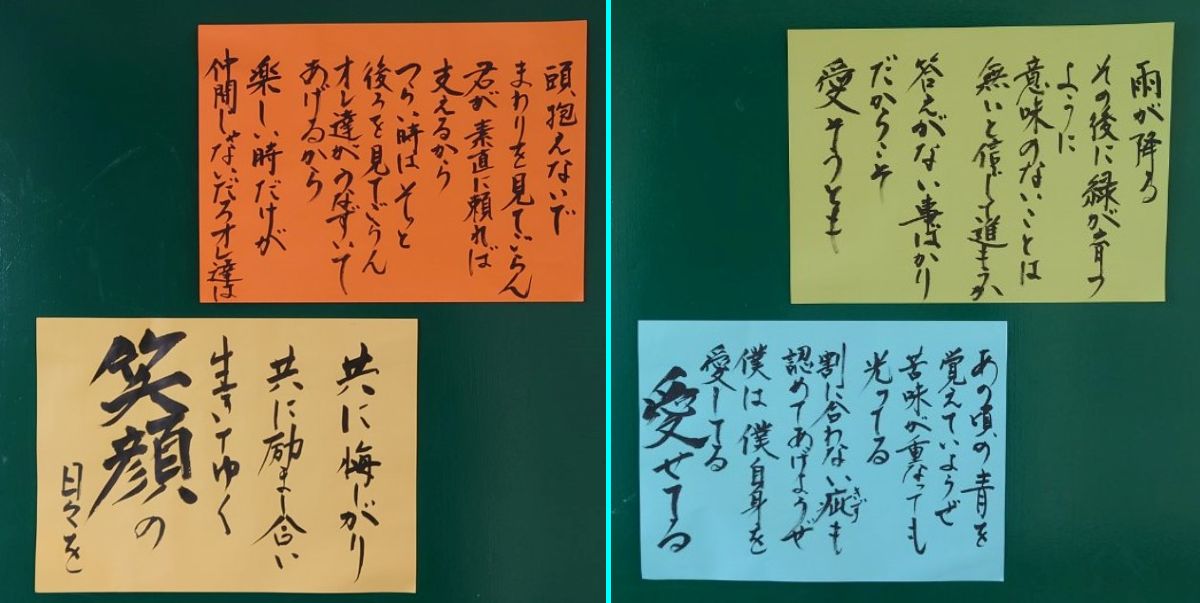 頭抱えないで
まわりを見てごらん
君が素直に頼れば
支えるから
つらい時はそっと
後ろを見てごらん
オレ達がうなずいて
あげるから
楽しい時だけが
仲間じゃないだろオレ達は
共に悔しがり
共に励まし合い
生きてゆく
笑顔の
日々を
雨が降る
その後に緑が育つ
ように
意味のないことは
無いと信じて進もうか
答えがない事ばかり
だからこそ
愛そうとも
あの頃の青を
覚えていようぜ
苦味が重なっても
光ってる
割に合わない疵も
きず
認めてあげようぜ
僕は僕自身を
愛してる
愛せてる